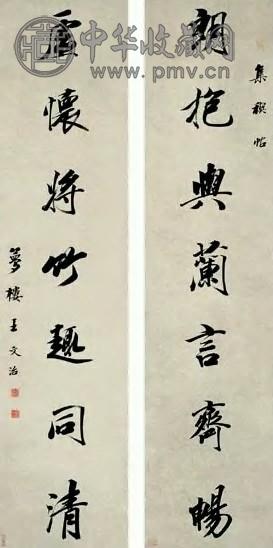 中华收藏网
www.pmv.cn
集禊帖
朗抱與蘭言齊暢
虛懷將竹趣同清
夢樓王文治